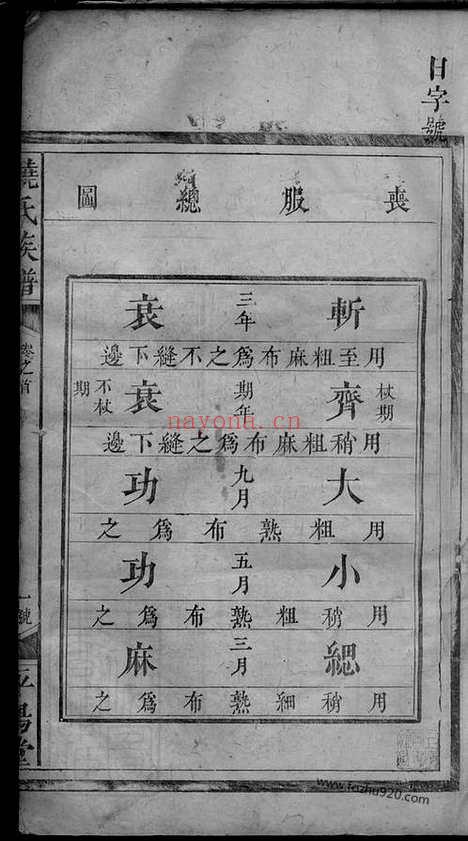 日字號
喪服總圖
斬 三年 衰
用至粗麻布為之不縫下邊
杖期 齊 期年 衰 不杖期
用稍粗麻布為之縫下邊
大 九月 功
用粗熟布為之
小 五月 功
用稍粗熟布為之
緦 三月 麻
用稍細熟布為之
饒氏族譜
卷之首
一號
nayona.cn
www.fozhu920.com